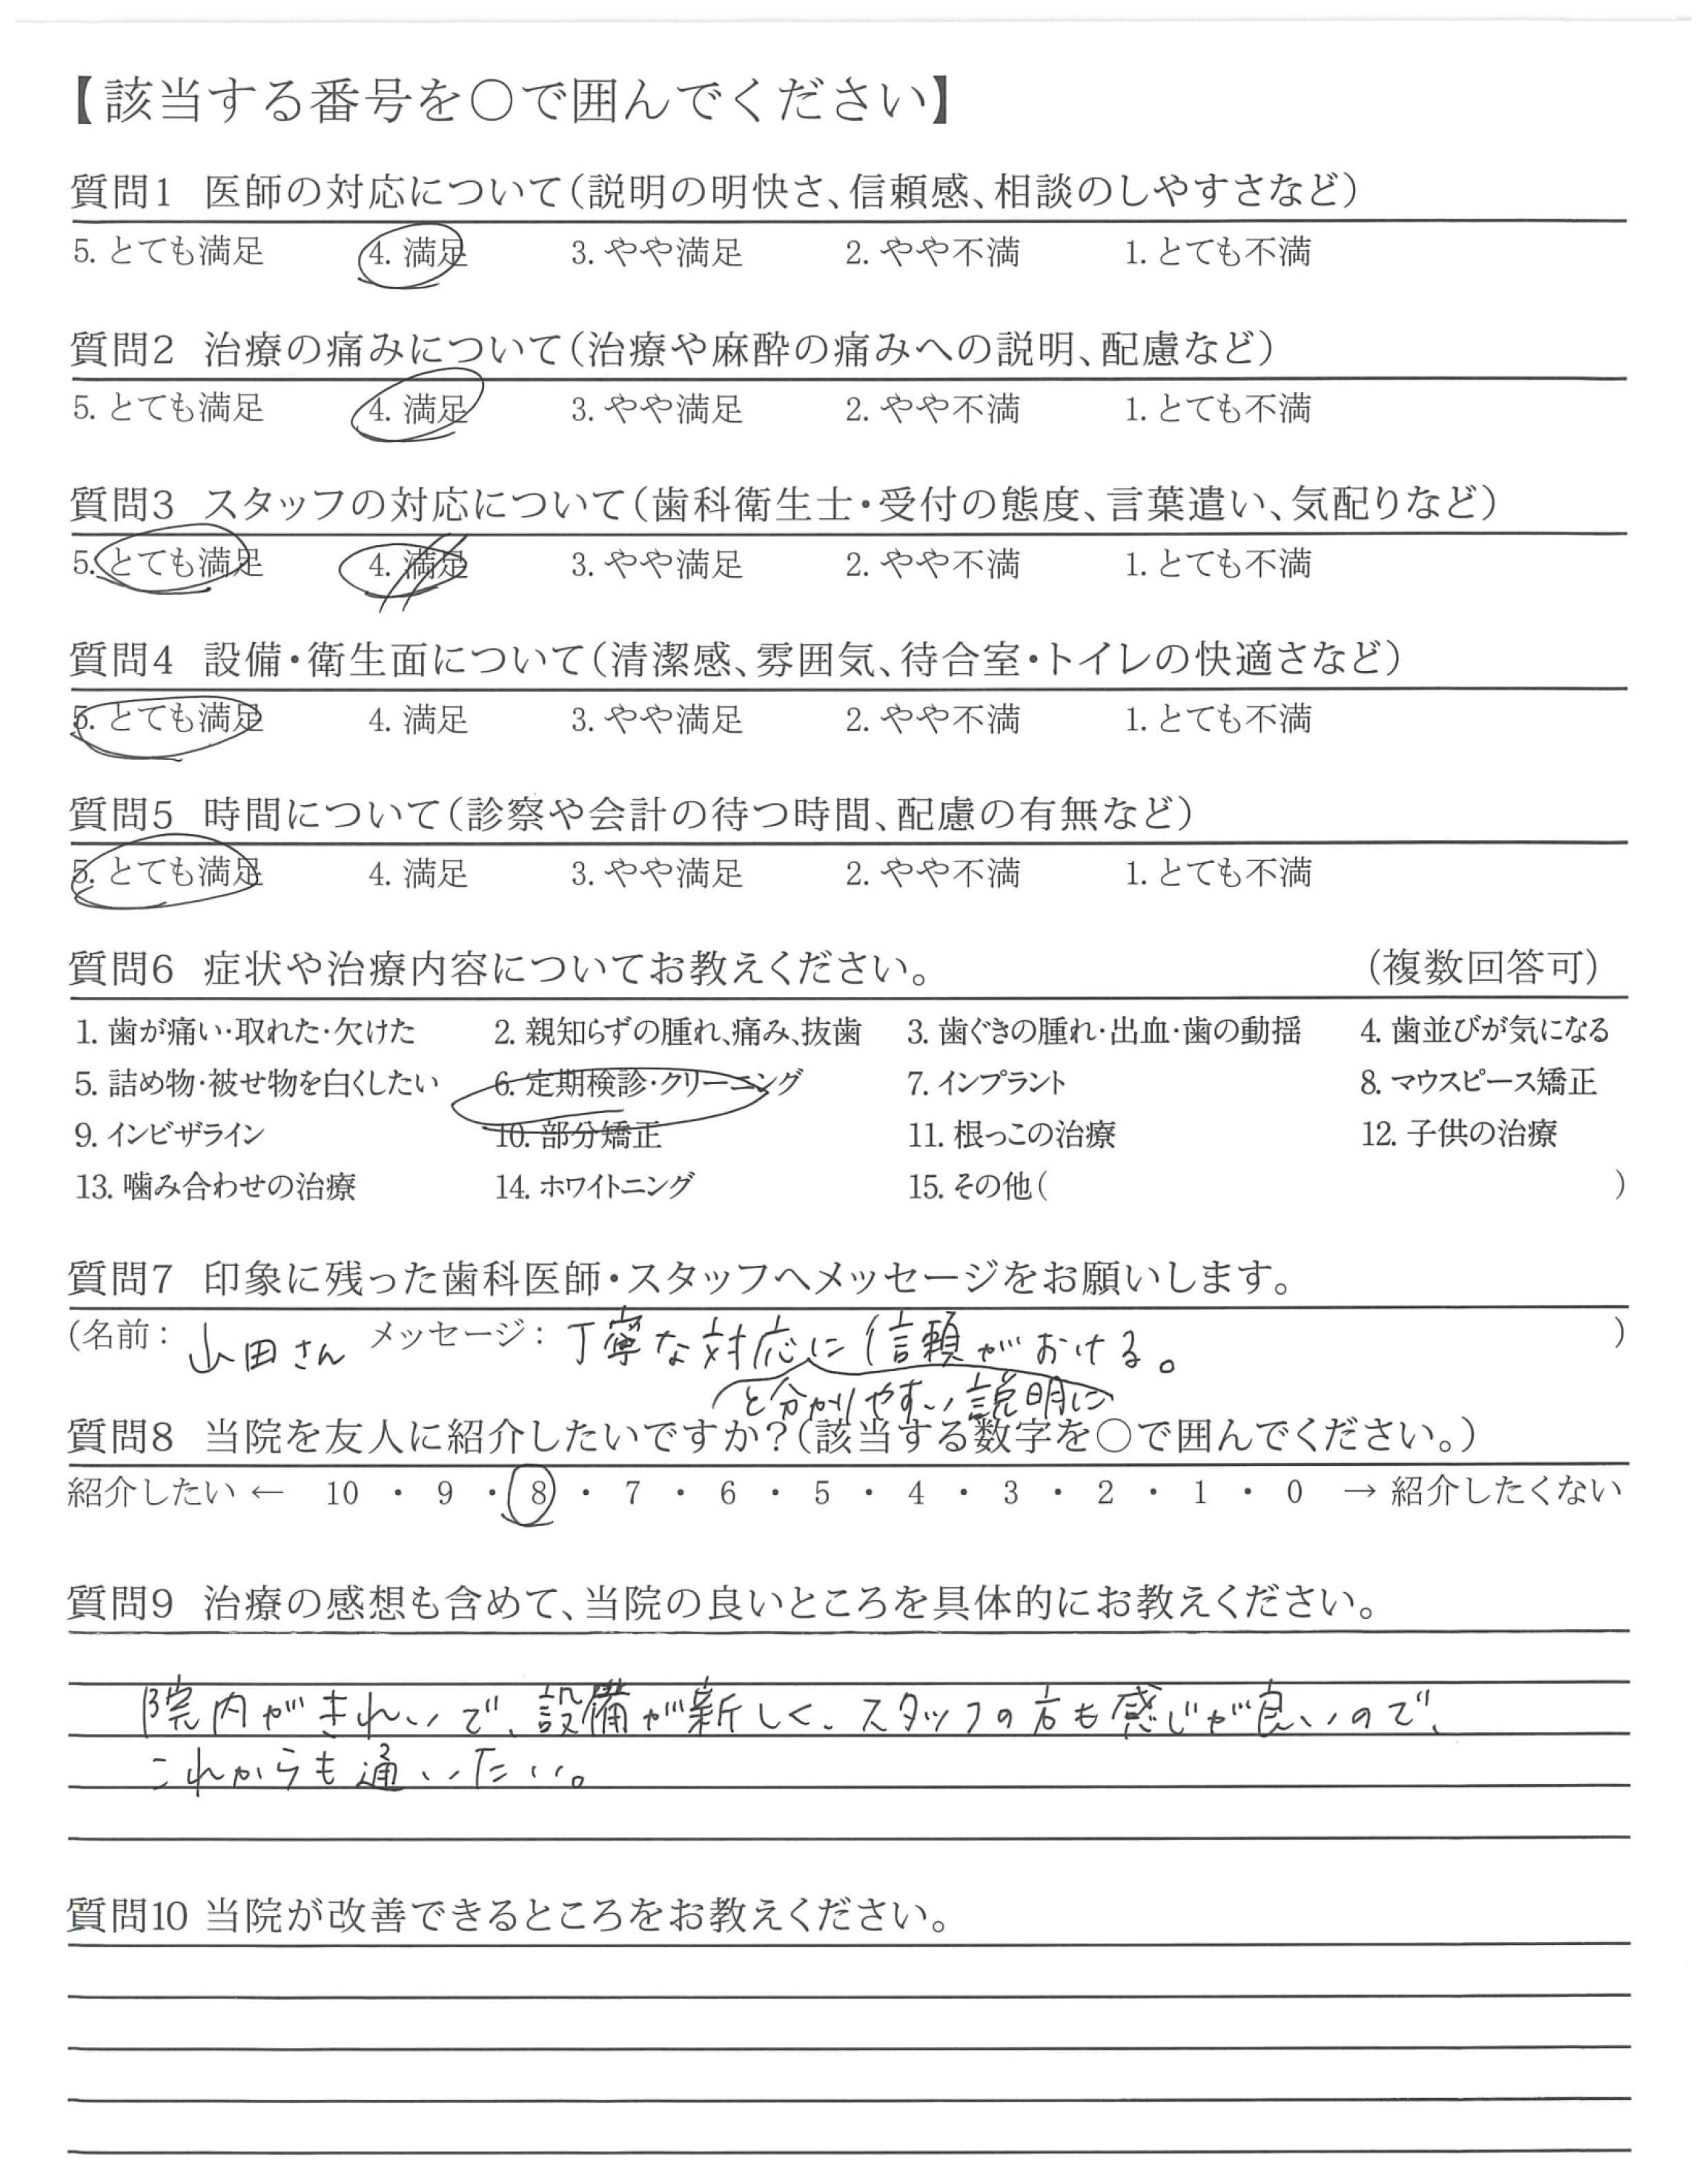 【該当する番号を○で囲んでください】
質問1 医師の対応について(説明の明快さ、信頼感、相談のしやすさなど)
5. とても満足 4. 満足 3. やや満足 2. やや不満 1. とても不満
質問2 治療の痛みについて(治療や麻酔の痛みへの説明、配慮など)
5. とても満足 4. 満足 3. やや満足 2. やや不満 1. とても不満
質問3 スタッフの対応について(歯科衛生士・受付の態度、言葉遣い、気配りなど)
5. とても満足 4. 満足 3. やや満足 2. やや不満 1. とても不満
質問4 設備・衛生面について(清潔感、雰囲気、待合室・トイレの快適さなど)
5. とても満足 4. 満足 3. やや満足 2. やや不満 1. とても不満
質問5 時間について(診察や会計の待つ時間、配慮の有無など)
5. とても満足 4. 満足 3. やや満足 2. やや不満 1. とても不満
質問6 症状や治療内容についてお教えください。 (複数回答可)
1. 歯が痛い・取れた・欠けた 2. 親知らずの腫れ、痛み、抜歯 3. 歯ぐきの腫れ・出血・歯の動揺 4. 歯並びが気になる
5. 詰め物・被せ物を白くしたい 6. 定期検診・クリーニング 7. インプラント 8. マウスピース矯正
9. インビザライン 10. 部分矯正 11. 根っこの治療 12. 子供の治療
13. 噛み合わせの治療 14. ホワイトニング 15. その他( )
質問7 印象に残った歯科医師・スタッフへメッセージをお願いします。
(名前: 山田さん メッセージ: 丁寧な対応に信頼がおける。 )
と分かりやすい説明に
質問8 当院を友人に紹介したいですか?(該当する数字を○で囲んでください。)
紹介したい ← 10 ・ 9 ・ 8 ・ 7 ・ 6 ・ 5 ・ 4 ・ 3 ・ 2 ・ 1 ・ 0 → 紹介したくない
質問9 治療の感想も含めて、当院の良いところを具体的にお教えください。
院内がきれいで、設備が新しく、スタッフの方も感じが良いので、
これからも通いたい。
質問10 当院が改善できるところをお教えください。